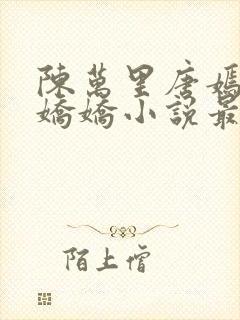 陳萬里唐嫣
嬌嬌小說最
陌上僧